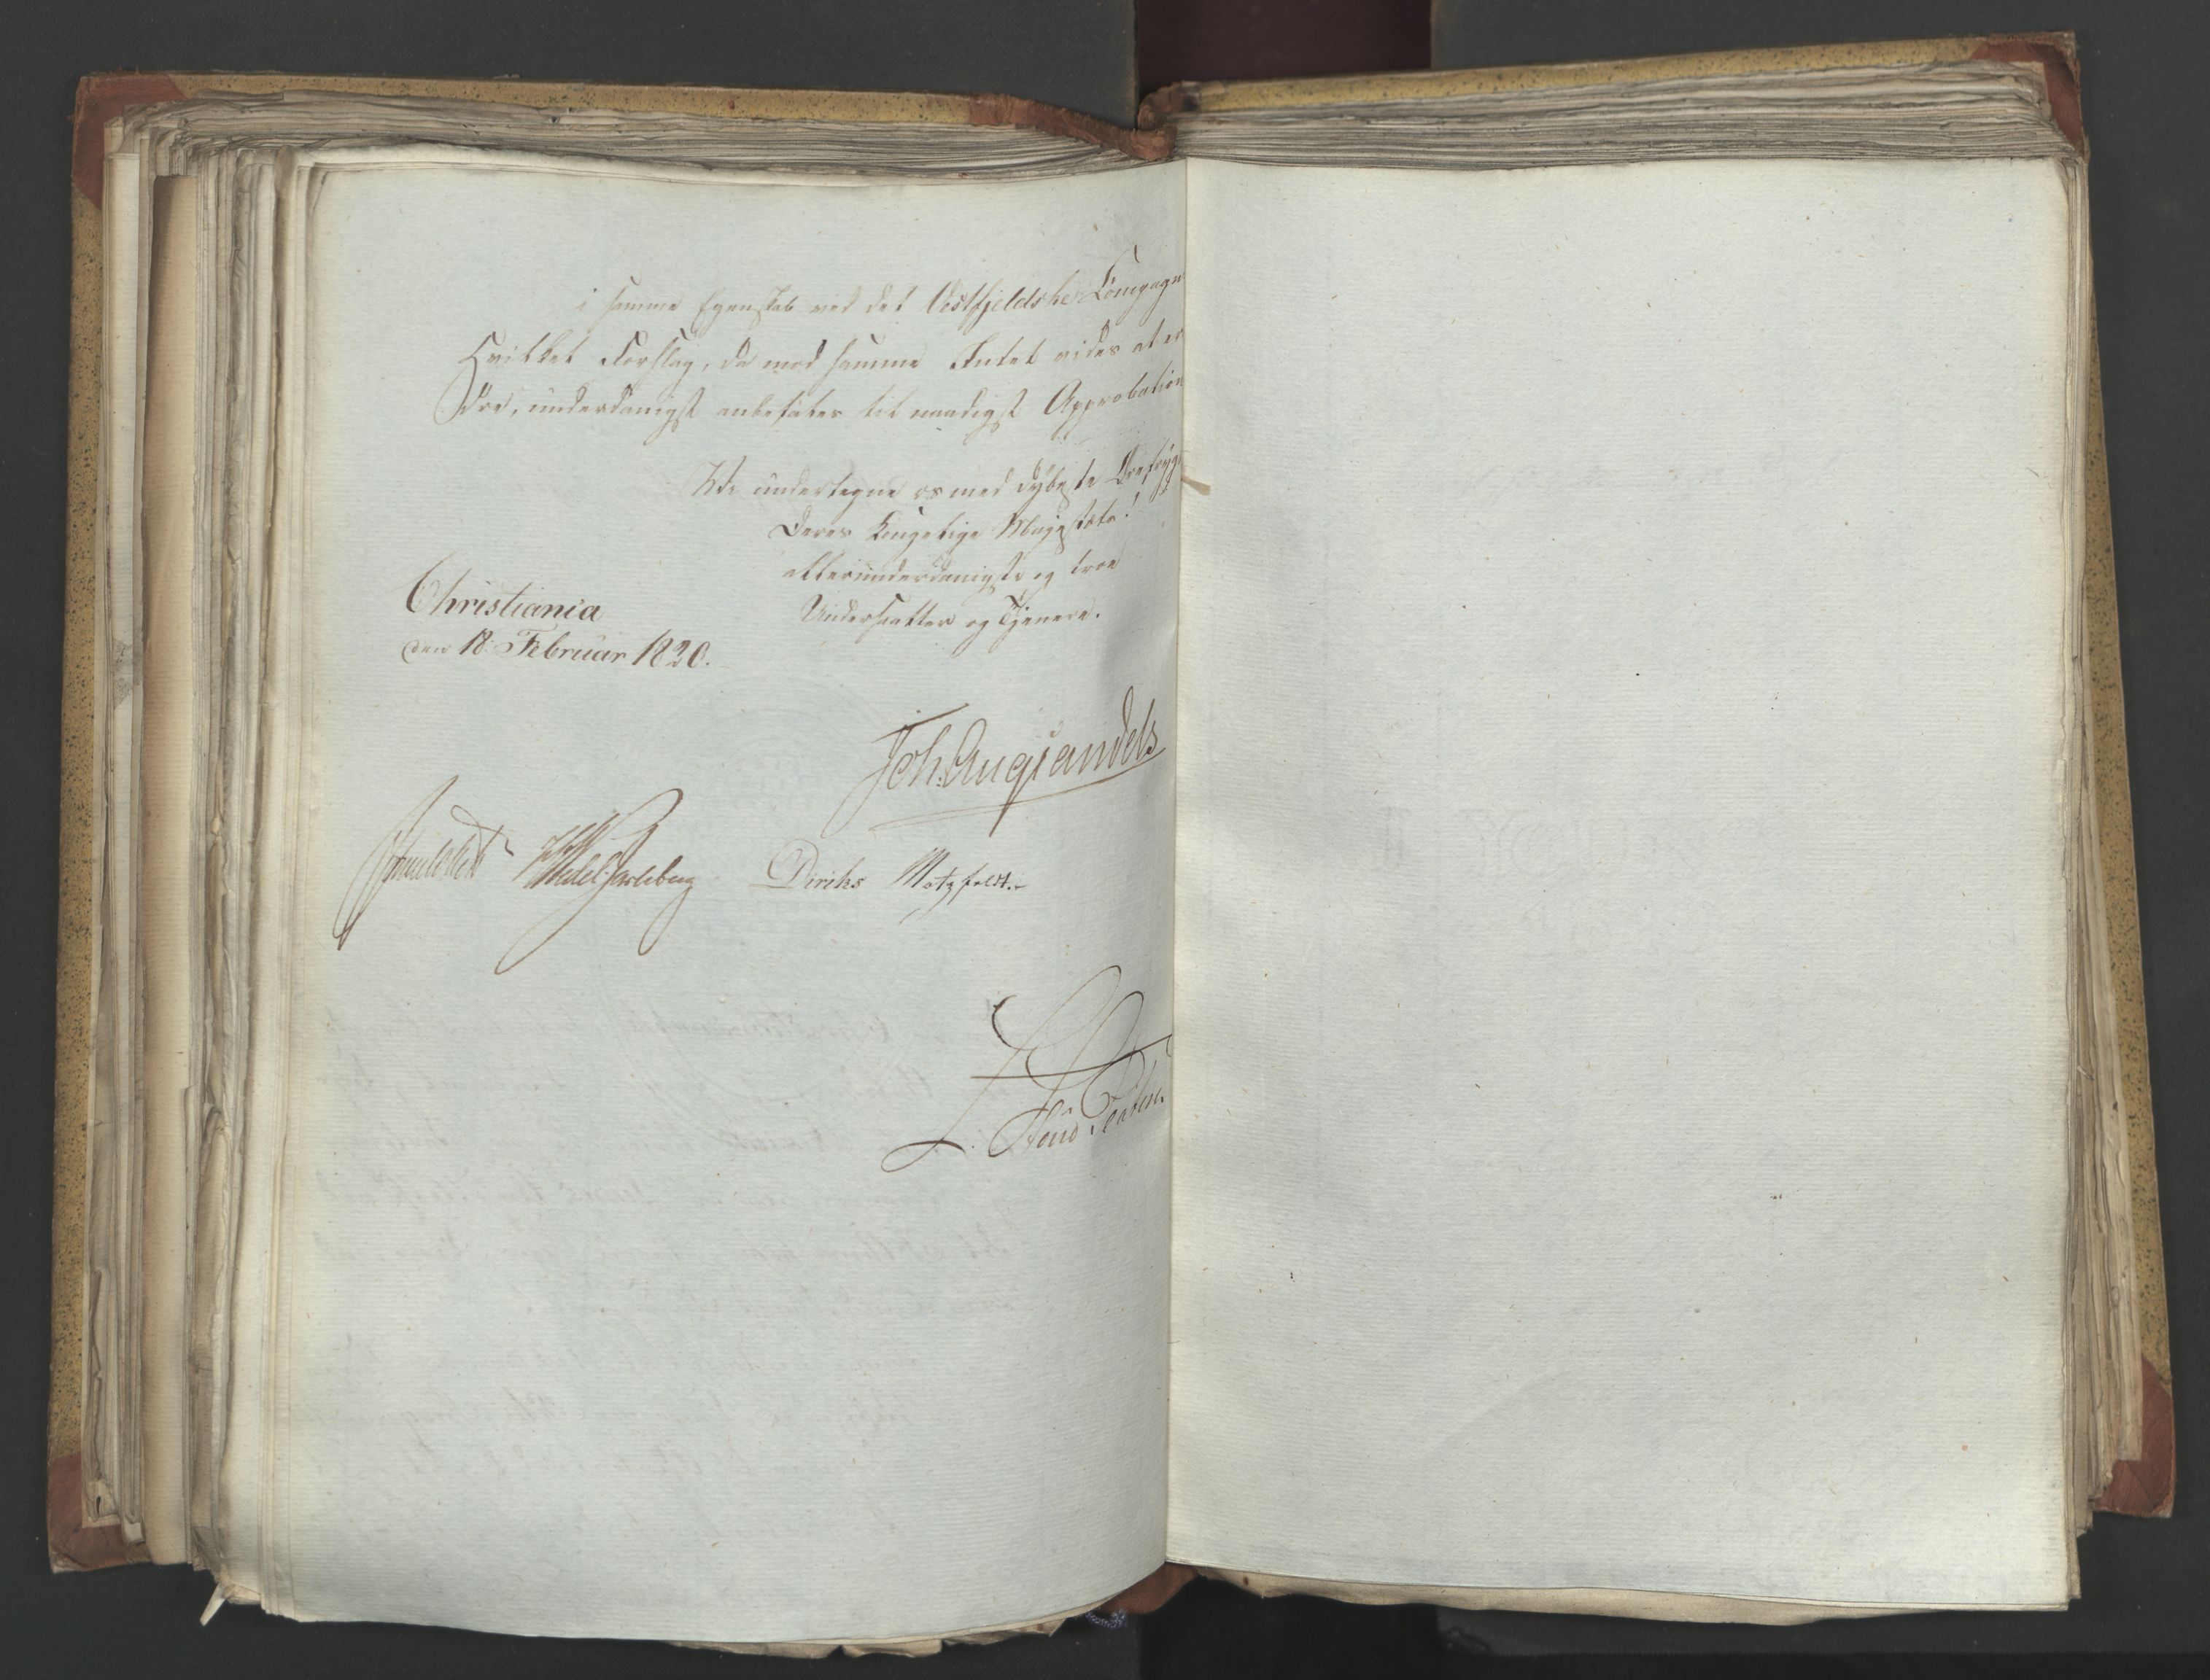 i samme Egenskab ved det Vestfjeldske Compagn
Hvilket Forslag, da mod samme Intet vides at er
dre, underdanigst anbefales til naadigst Approbation
Vi undertegne os med dybeste Ærefrygt
Deres Kongelige Majestæts!
allerunderdanigste og troe
Undersaatter og Tjenere.
Christiania
den 18 Februar 1820.
Joh. Aug Sandels
Sommerhielm Wedel-Jarlsberg Diriks Motzfeldt.